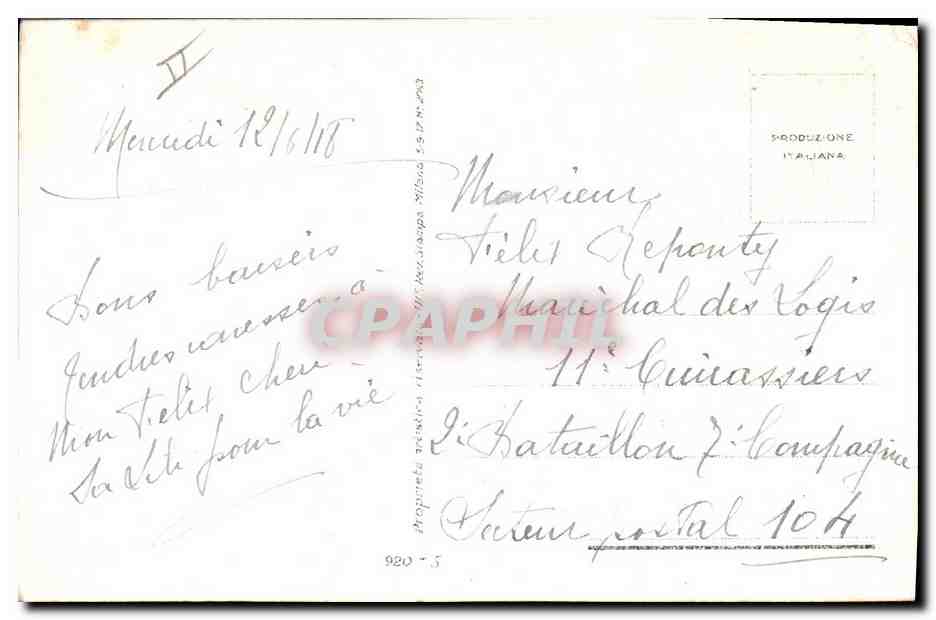 II
Mercredi 12/6/18
Bons baisers
Tendres caresses à
Mon Félix cheri
Ta Lili pour la vie
Propriété artistica riservata
Milano
920 - 5
PRODUZIONE
ITALIANA
Monsieur
Félix Reponty
Maréchal des Logis
11e Cuirassiers
2e Bataillon 7e Compagnie
Secteur postal 104
CPAPHIL